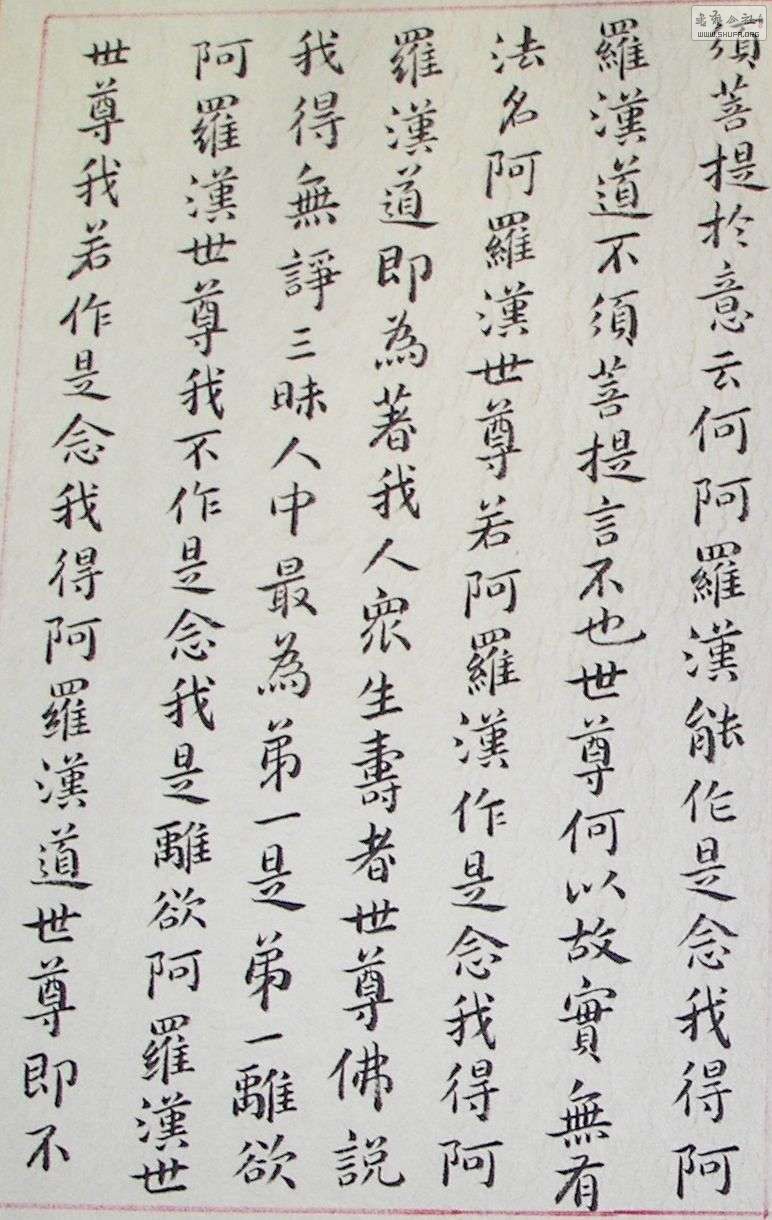 須菩提於意云何阿羅漢能作是念我得阿
羅漢道不須菩提言不也世尊何以故實無有
法名阿羅漢世尊若阿羅漢作是念我得阿
羅漢道即為著我人眾生壽者世尊佛説
我得無諍三昧人中最為弟一是弟一離欲
阿羅漢世尊我不作是念我是離欲阿羅漢世
世尊我若作是念我得阿羅漢道世尊即不
WWW.SHUFA.ORG